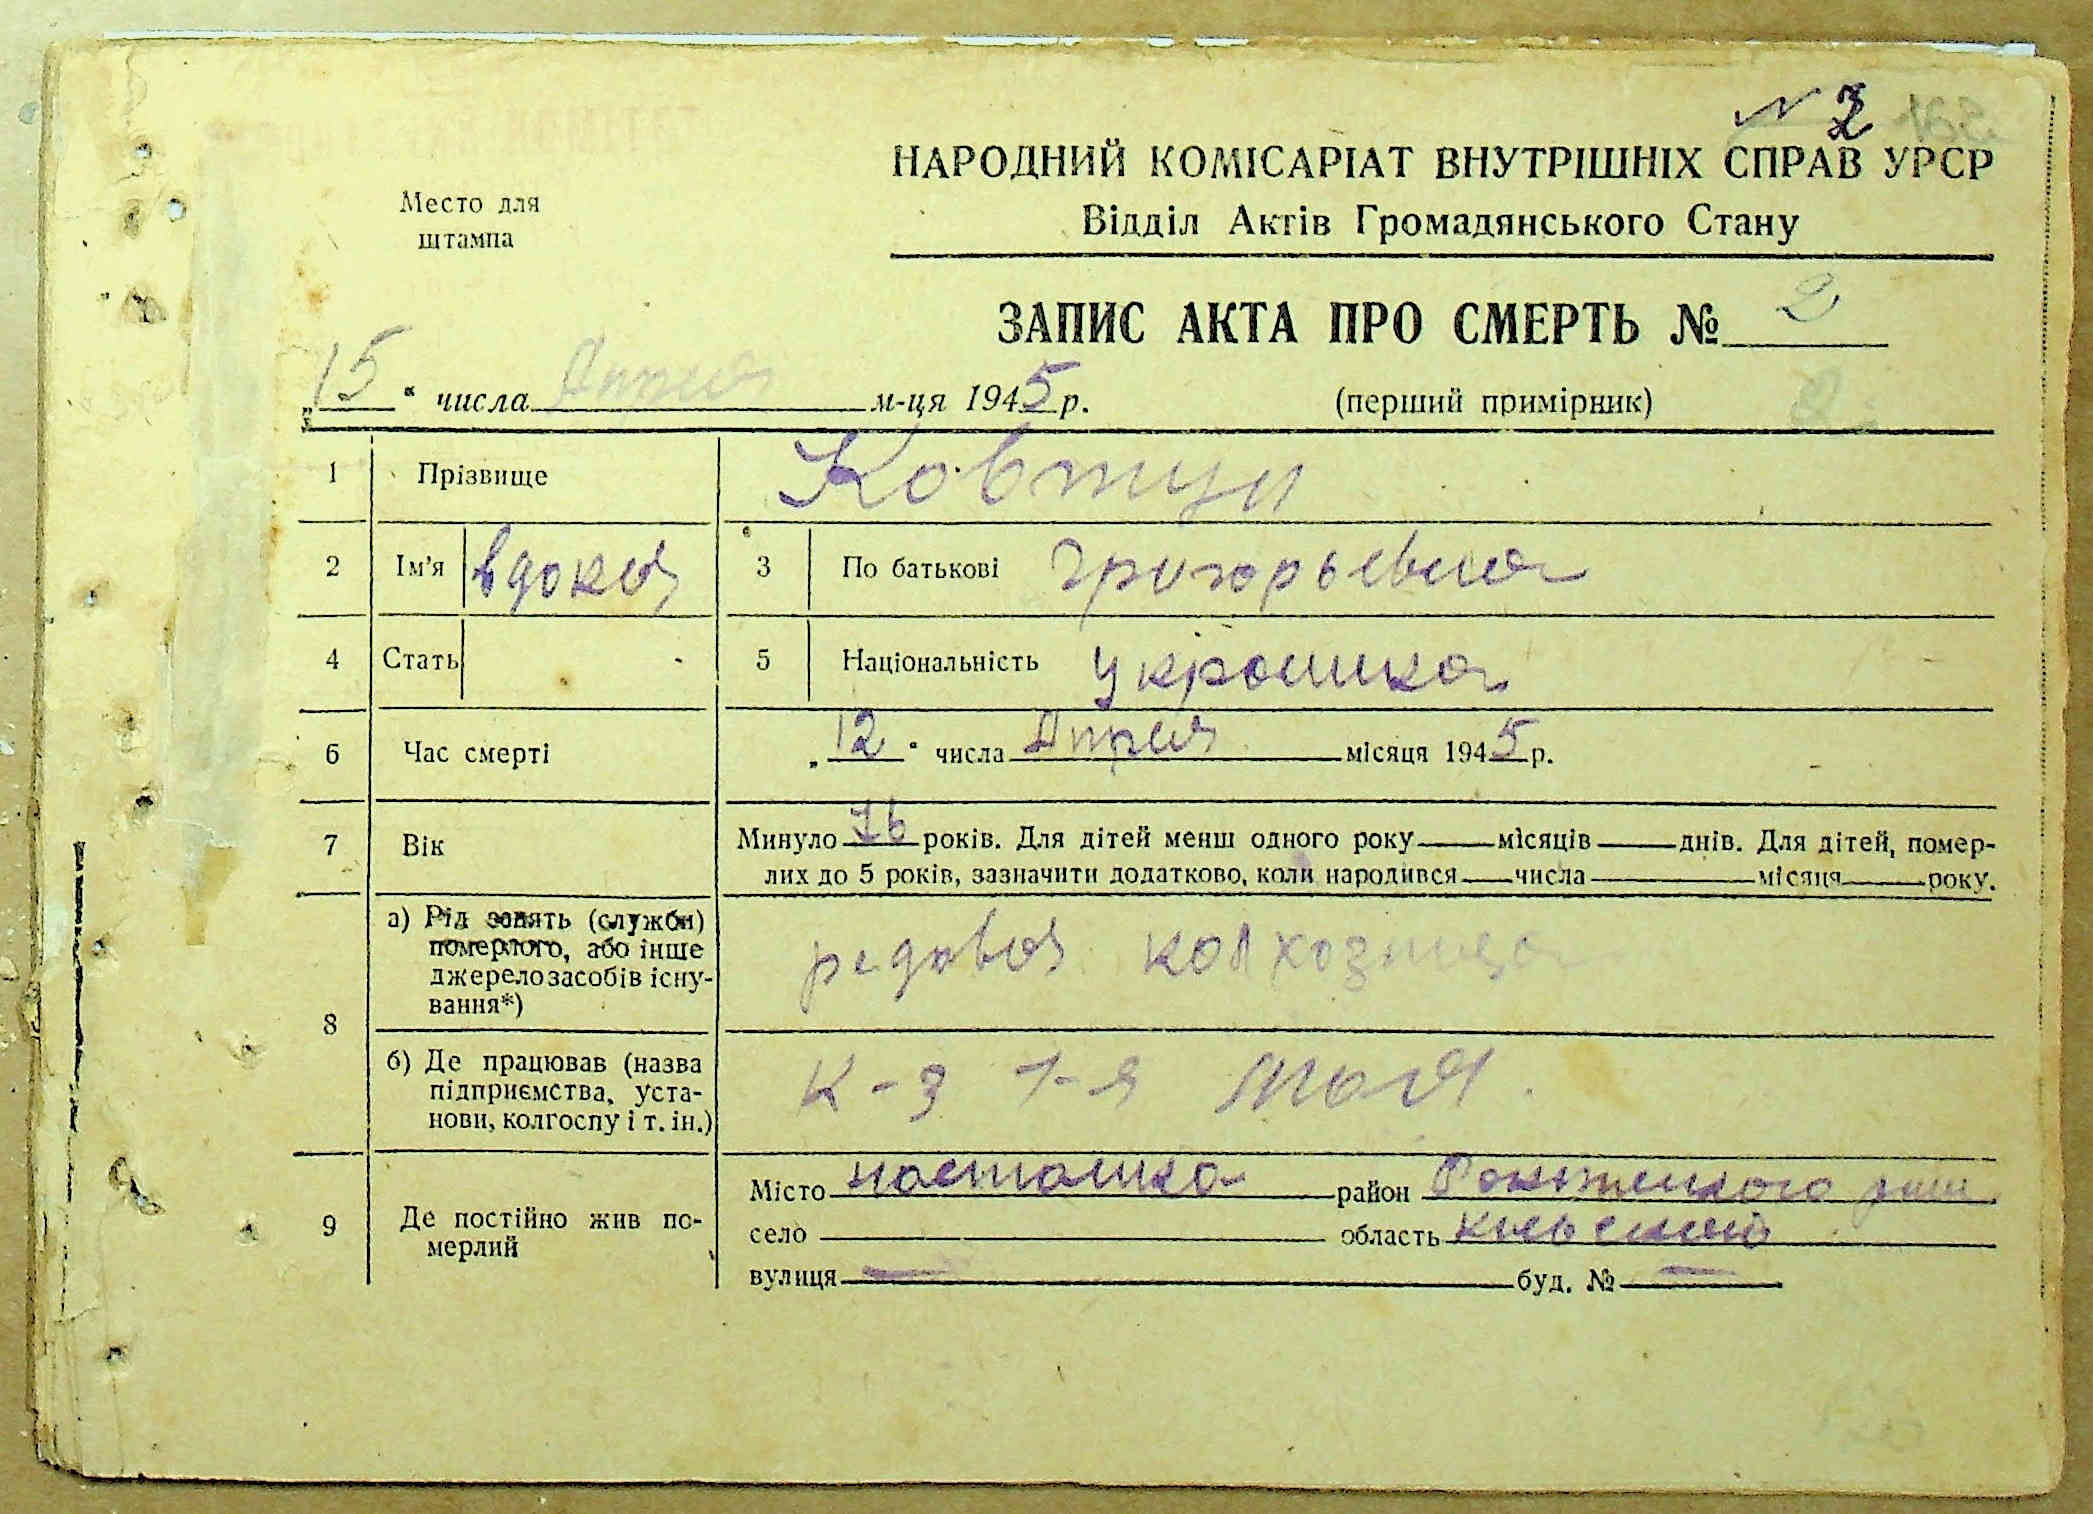 № 2
НАРОДНИЙ КОМІСАРІАТ ВНУТРІШНІХ СПРАВ УРСР
Место для
штампа
Відділ Актів Громадянського Стану
ЗАПИС АКТА ПРО СМЕРТЬ № 2
„15“ числа Апреля м-ця 1945 р. (перший примірник)
1 Прізвище Ковтун
2 Ім'я Вдокия 3 По батькові Григорьевна
4 Стать 5 Національність Украинка
6 Час смерті „12“ числа Апреля місяця 1945 р.
7 Вік Минуло 76 років. Для дітей менш одного року місяців днів. Для дітей, помер-
лих до 5 років, зазначити додатково, коли народився числа місяця року.
8 а) Рід занять (служби)
померлого, або інше
джерело засобів існу-
вання*)
редовая колхозница
б) Де працював (назва
підприємства, уста-
нови, колгоспу і т. ін.)
к-з 1-я Мая
9 Де постійно жив по-
мерлий
Місто насташка район Рокитянского
село область Киевской
вулиця — буд. № —